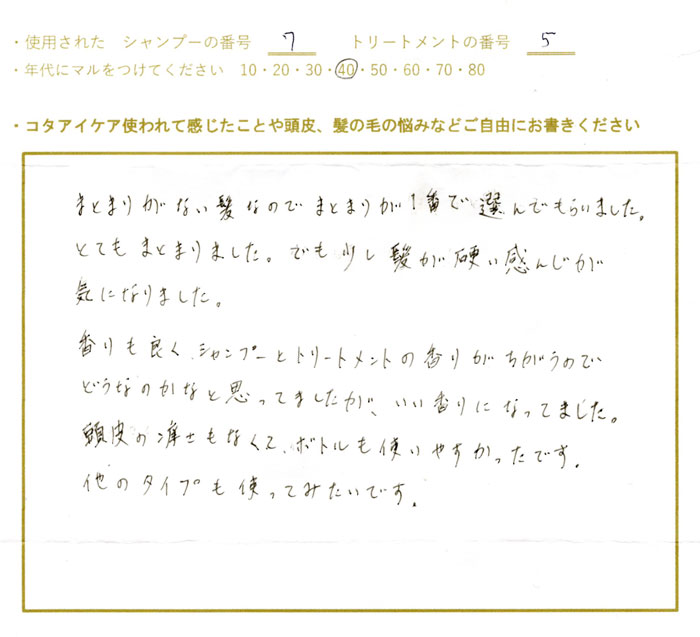 ・使用された シャンプーの番号 7 トリートメントの番号 5
・年代にマルをつけてください 10・20・30・40・50・60・70・80
・コタアイケア使われて感じたことや頭皮、髪の毛の悩みなどご自由にお書きください
まとまりがない髪なのでまとまりが1番で選んでもらいました。
とてもまとまりました。でも少し髪が硬い感んじが
気になりました。
香りも良く、シャンプーとトリートメントの香りがちがうので
どうなのかなと思ってましたが、いい香りになってました。
頭皮のもなくて、ボトルも使いやすかったです。
他のタイプも使ってみたいです。